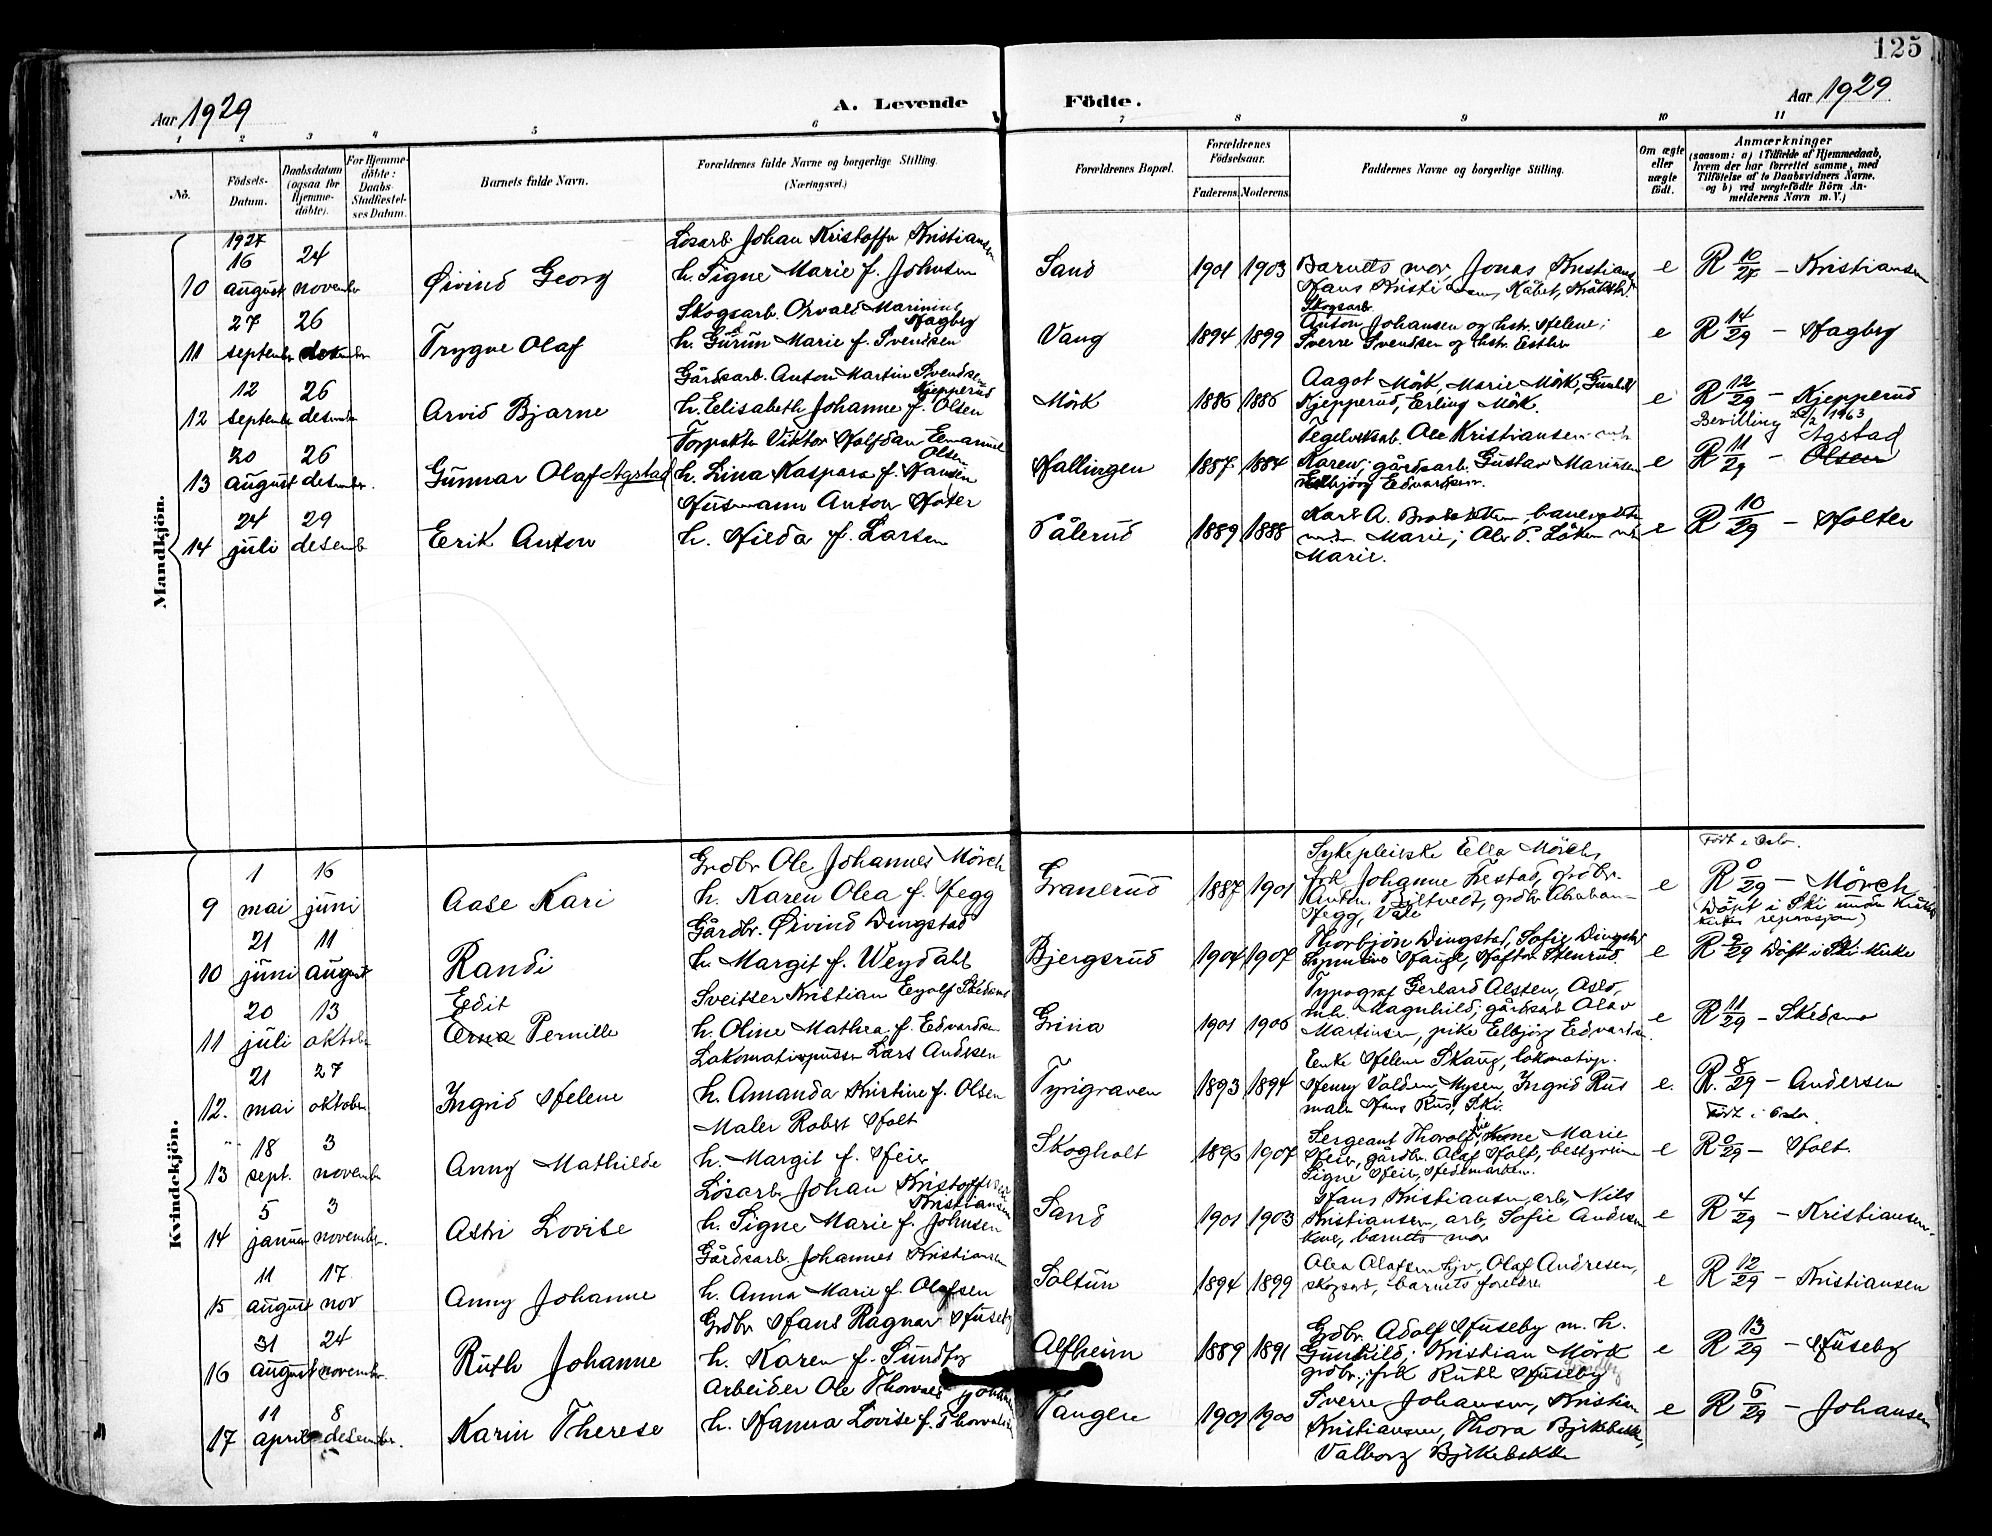 125
Aar 1929
A. Levende Födte.
Aar 1929
1 2 3 4 5 6 7 8 9 10 11
Nô. Födsels-Datum. Daabsdatum (ogsaa for Hjemmedöbte). For Hjemmedöbte: Daabs-Stadfæstelses Datum. Barnets fulde Navn. Forældrenes fulde Navne og borgerlige Stilling. (Næringsvei.) Forældrenes Bopæl. Forældrenes Födselsaar. Faderens. Moderens. Faddernes Navne og borgerlige Stilling. Om ægte eller uægte födt. Anmærkninger (saasom: a) i Tilfælde af Hjemmedaab, hvem der har forrettet samme, med Tilföielse af to Daabsvidners Navne. og b) ved uægtefödte Börn Anmelderens Navn m. V.)
Mandkjön.
1927
Lösarb. Johan Kristoffer Kristiansen
10 16 august 24 november Øivind Georg h. Signe Marie f. Johnsen Sand 1901 1903 Barnets mor, Jonas Kristians e R 10/27 – Kristiansen
Hans Kristiansen
Skogsarb. Orvald Marinius Hagberg
Skogsarb.
11 27 september 26 desember Trygve Olaf h. Gurun Marie f. Svendsen Vang 1894 1899 Anton Johansen og hstr. Helene; e R 14/29 – Hagberg
Sverre Svendsen og hstr. Esther
Gårdsarb. Anton Martin Svendsen Kjepperud
12 12 september 26 desember Arvid Bjarne h. Elisabeth Johanne f. Olsen Mörk 1886 1886 Aagot Mörk, Marie Mörk, Gunhild e R 12/29 – Kjepperud
Kjepperud, Erling Mörk.
Bevilling 1963
Forpakter Viktor Halfdan Emanuel Olsen
Teglverksarb. Ole Kristiansen
Agstad
13 20 august 26 desember. Gunnar Olaf Agstad h. Lina Kaspara f. Hansen Hallingen 1887 1884 Karen; gårdsarb. Gustav Marinsen e R 11/29 – Olsen
Elbjörg Edvardsen.
Husmann Anton Holter
14 24 juli 29 desemb Erik Anton h. Hilda f. Larsen Pålerud 1889 1888 Karl A. e R 10/29 – Holter
Marie; Ole P. Löken
Marie.
Kvindekjön.
Grdbr Ole Johannes Mörch
Sykepleierske Ella Mörch,
Födt i Oslo.
9 1 mai 16 juni Aase Kari h. Karen Olea f. Hegg Granerud 1887 1901 frk Johanne Festad, grdbr. e R 0/29 – Mörch
Anton Tiltvedt, grdbr Abraham
Hegg, Våle
(Döpt i Ski under kirkens reparasjon)
Gårdbr. Øivind Dingstad
10 21 juni 11 august Randi h. Margit f. Weydahl Bjergsrud 1904 1907 Thorbjön Dingstad, Sofie Dingstad e R. 9/29 Döpt i Ski kirke
Sveitser Kristian Eyolf Skedsmo
Typograf Gerhard Alsten, Oslo,
Edit
11 20 juli 13 oktober Erna Pernille h. Oline Mathea f. Edvardsen Grina 1901 1906 m.h. Magnhild, gårdsarb Olav e R 11/29 – Skedsmo
Martinsen, pike Elbjörg Edvardsen
Lokomotivpusser Lars Andersen
Enke Helene Skaug, lokomotivp.
12. 21 mai 27 oktober Ingrid Helene h. Amanda Kirstine f. Olsen Tyrigraven 1893 1894 Henry Volden, Mysen, Ingrid Rus e. R. 8/29 – Andersen
maler Hans Rus, Ski.
Maler Robert Holt
Födt i Oslo
13 18 sept. 3 november Anny Mathilde h. Margit f. Heier Skogholt 1896 1907 Sergeant Thorolf, Marie e R 0/29 – Holt.
Heier, gårdbr. Olaf Holt, bestyrerinne
Signe Heier, Hedemarken.
Lösarb. Johan Kristoffer Kristiansen
14 5 januar 3 november. Astri Lovise h. Signe Marie f. Johnsen Sand 1901 1903 Hans Kristiansen, arb, Nils e R 4/29 – Kristiansen.
Kristiansen, arb, Sofie Andersen
kone, barnets mor
Gårdsarb. Johannes Kristiansen
15 11 august 17 nov Anny Johanne h. Anna Marie f. Olafsen Soltun 1894 1899 Olea Olafsen hjv, Olaf Andresen, e R 12/29 – Kristiansen
skogsarb, barnets foreldre
Grdbr Hans Ragnar Huseby
16 31 august 24 november. Ruth Johanne h. Karen f. Sundby Alfheim 1889 1891 Grdbr. Adolf Huseby m. h. e R 13/29 – Huseby
Gunhild; Kristian Mörk
grdbr; frk Ruth Huseby
Sundby
Arbeider Ole Thorvald Johansen
17 11 april 8 desember. Karin Therese h. Hanna Lovise f. Thorvaldsen Tangen 1901 1900 Sverre Johansen, Kristian e R 5/29 – Johansen
Kristiansen, Thora Björkebekk,
Valborg Björkebekk